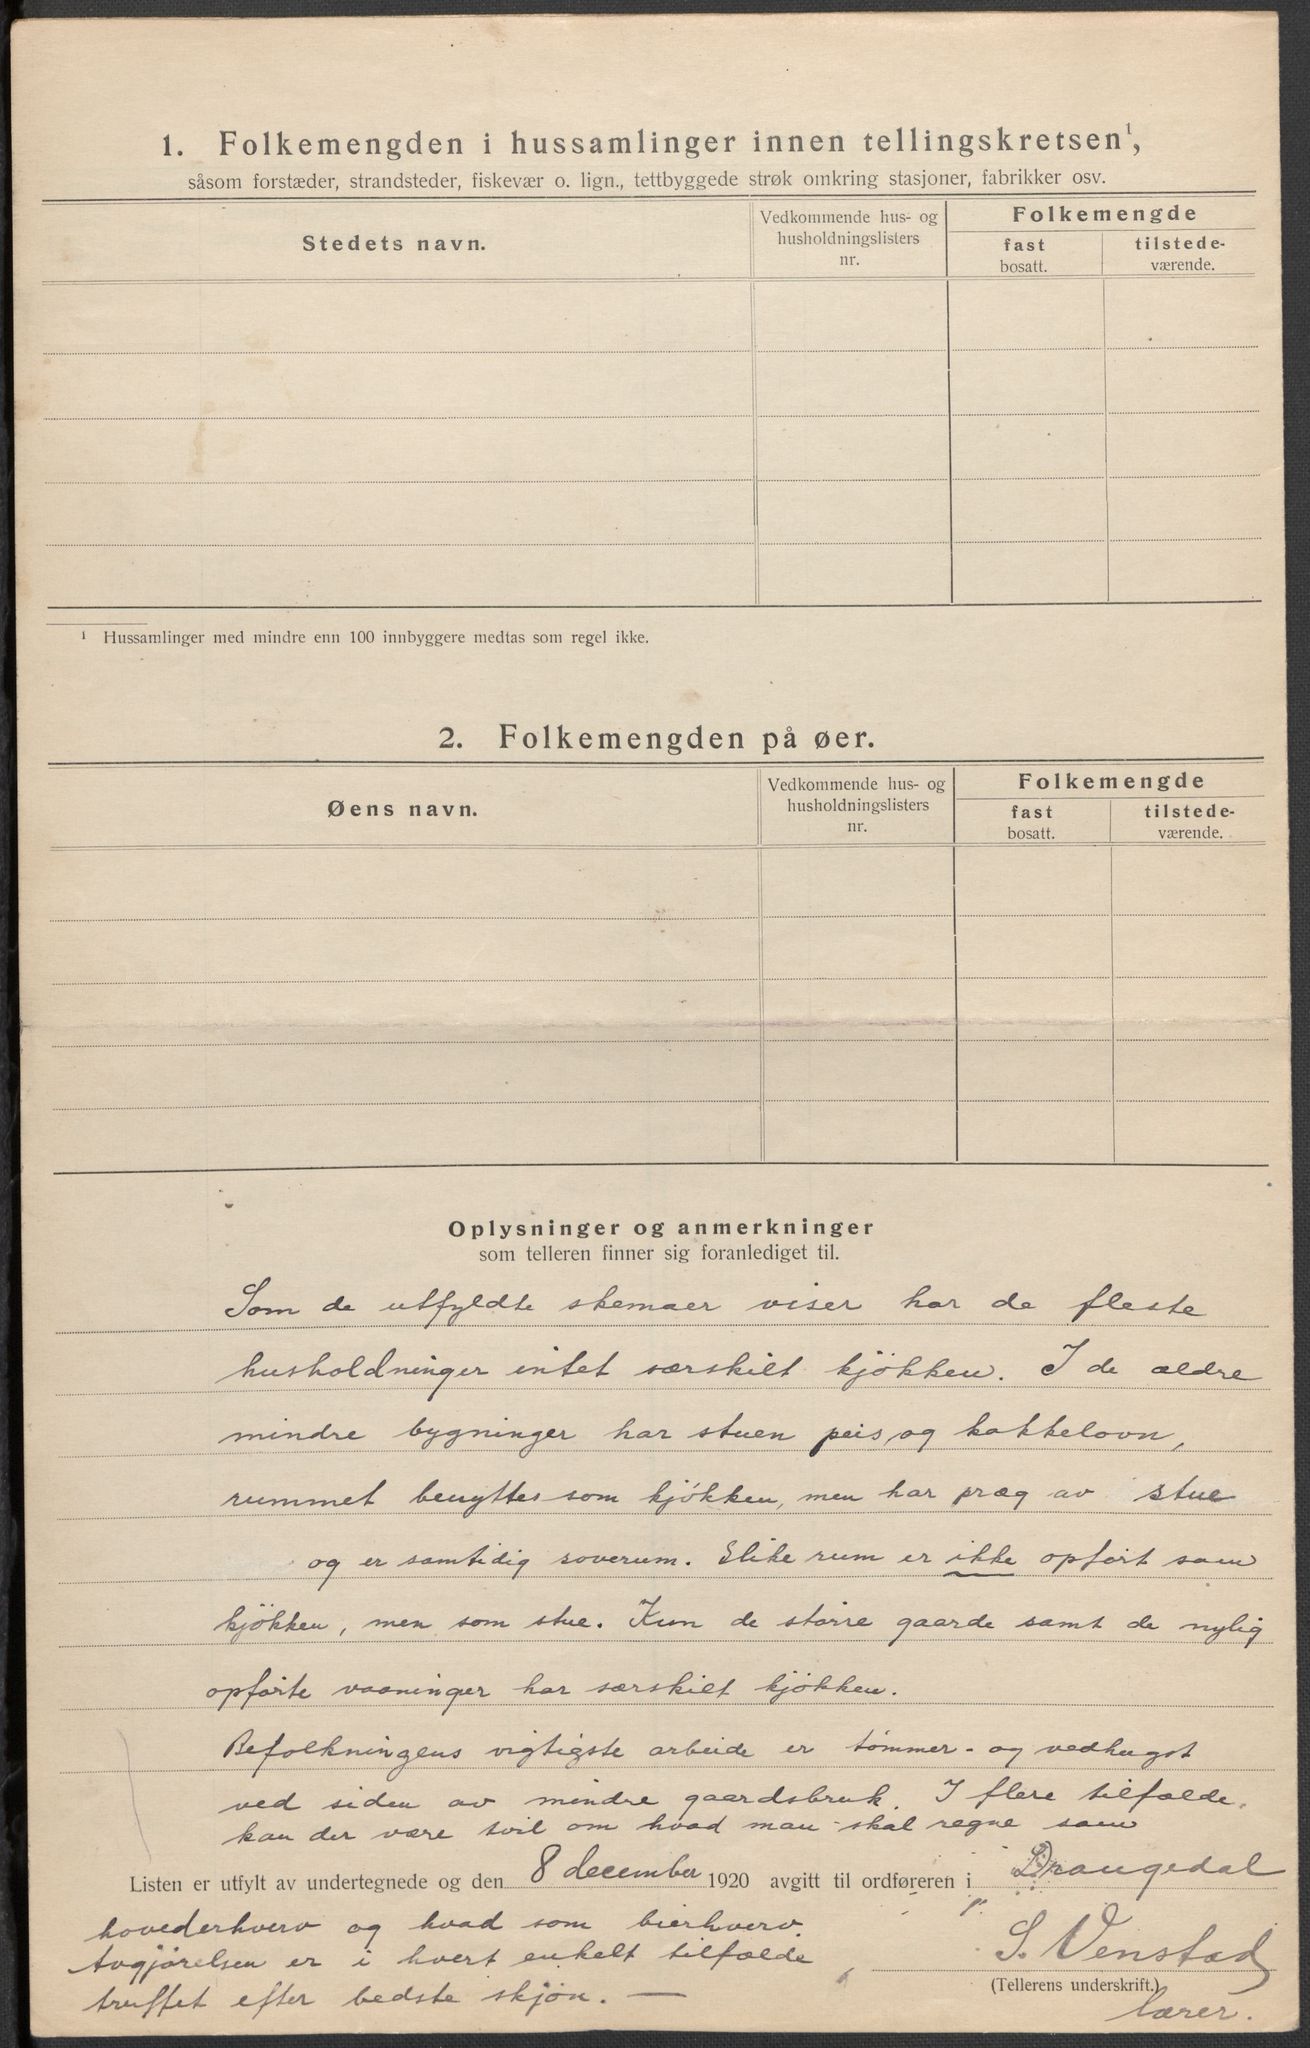 1. Folkemengden i hussamlinger innen tellingskretsen¹,
såsom forstæder, strandsteder, fiskevær o. lign., tettbyggede strøk omkring stasjoner, fabrikker osv.
Stedets navn.
Vedkommende hus- og
husholdningslisters
nr.
Folkemengde
fast
bosatt.
tilstede-
værende.
¹ Hussamlinger med mindre enn 100 innbyggere medtas som regel ikke.
2. Folkemengden på øer.
Øens navn.
Vedkommende hus- og
husholdningslisters
nr.
Folkemengde
fast
bosatt.
tilstede-
værende.
Oplysninger og anmerkninger
som telleren finner sig foranlediget til.
Som de utfyldte skemaer viser har de fleste
husholdninger intet særskilt kjökken. I de ældre
mindre bygninger har stuen peis og kakkelovn,
rummet benyttes som kjökken, men har præg av stue
og er samtidig soverum. Slike rum er ikke opfört som
kjökken, men som stue. Kun de större gaarde samt de nylig
opförte vaaninger har særskilt kjökken.
Befolkningens vigtigste arbeide er tömmer- og vedhugst
ved siden av mindre gaardsbruk. I flere tilfælde
kan der være tvil om hvad man skal regne som
Listen er utfylt av undertegnede og den 8 december 1920 avgitt til ordføreren i Drangedal
hovederhverv og hvad som bierhverv.
Avgjörelsen er i hvert enkelt tilfælde
truffet efter bedste skjön. —
S. Venstad
(Tellerens underskrift.)
lærer.